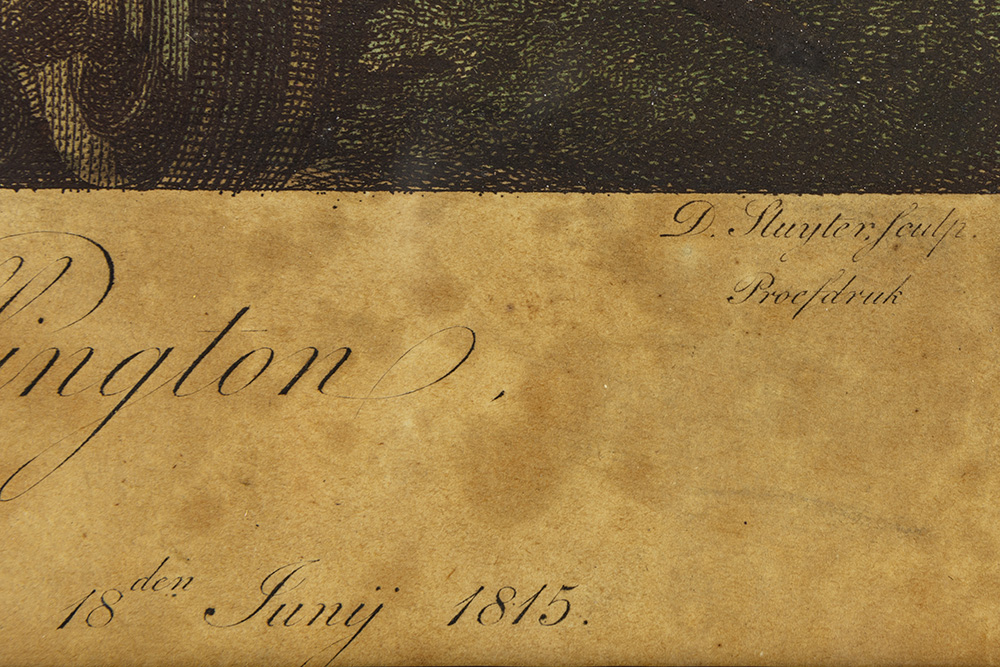 D. Sluyter, sculp.
Proefdruk
llington,
18den Junij 1815.